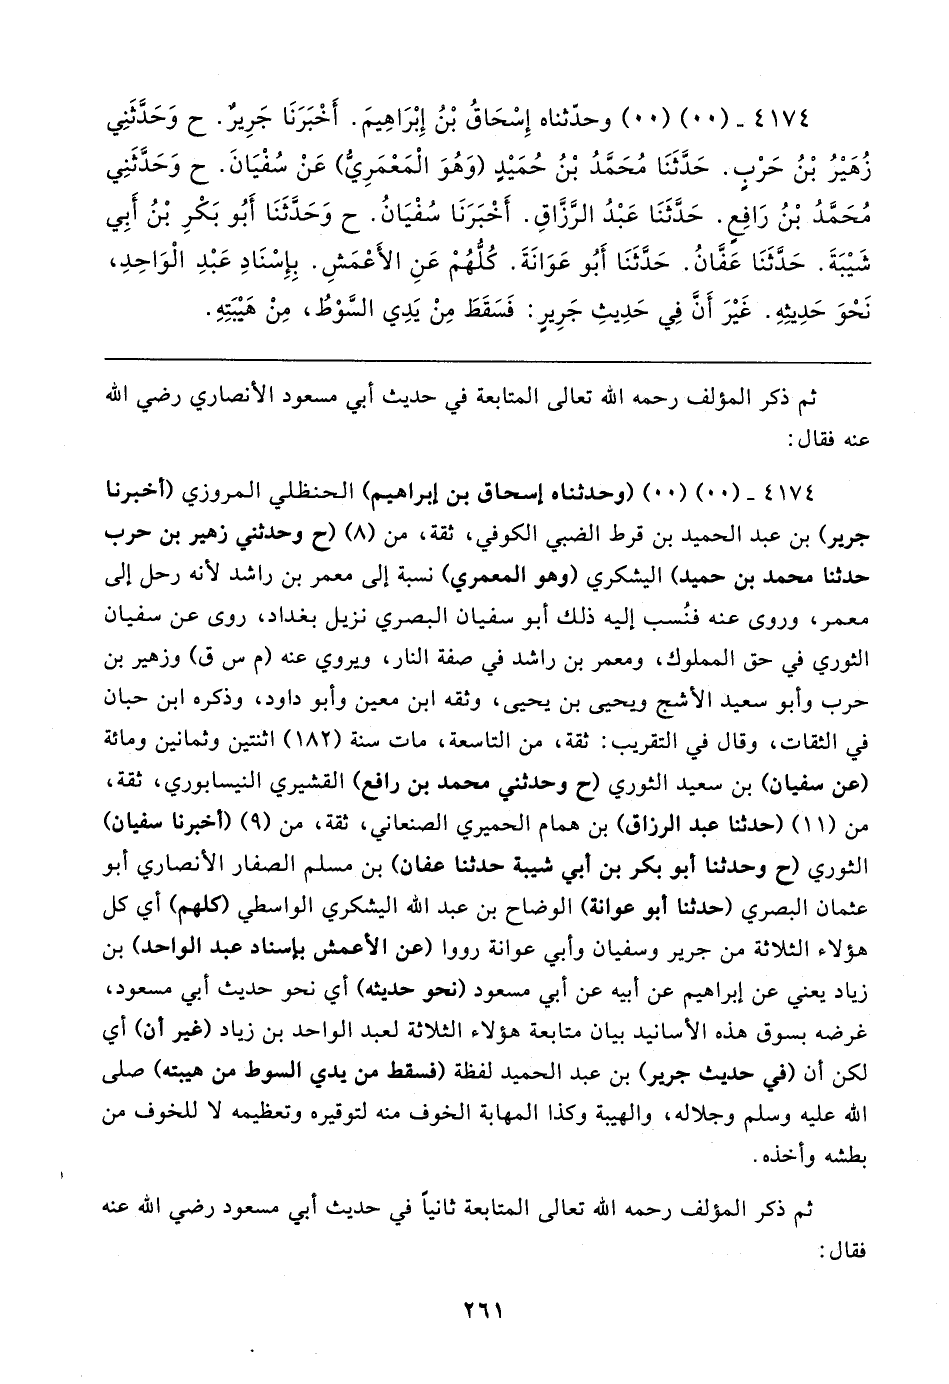 ٤١٧٤ ـ (٠٠) (٠٠) وحدّثناه إِسْحَاقُ بْنُ إِبْرَاهِيمَ. أَخْبَرَنَا جَرِيرٌ. ح وَحَدَّثَنِي
زُهَيْرُ بْنُ حَرْبٍ. حَدَّثَنَا مُحَمَّدُ بْنُ حُمَيْدٍ (وَهُوَ الْمَعْمَرِيُّ) عَنْ سُفْيَانَ. ح وَحَدَّثَنِي
مُحَمَّدُ بْنُ رَافِعٍ. حَدَّثَنَا عَبْدُ الرَّزَّاقِ. أَخْبَرَنَا سُفْيَانُ. ح وَحَدَّثَنَا أَبُو بَكْرِ بْنُ أَبِي
شَيْبَةَ. حَدَّثَنَا عَفَّانُ. حَدَّثَنَا أَبُو عَوَانَةَ. كُلُّهُمْ عَنِ الأَعْمَشِ. بِإِسْنَادِ عَبْدِ الْوَاحِدِ،
نَحْوَ حَدِيثِهِ. غَيْرَ أَنَّ فِي حَدِيثِ جَرِيرٍ: فَسَقَطَ مِنْ يَدِي السَّوْطُ، مِنْ هَيْبَتِهِ.
ثم ذكر المؤلف رحمه الله تعالى المتابعة في حديث أبي مسعود الأنصاري رضي الله
عنه فقال:
٤١٧٤ ـ (٠٠) (٠٠) (وحدثناه إسحاق بن إبراهيم) الحنظلي المروزي (أخبرنا
جرير) بن عبد الحميد بن قرط الضبي الكوفي، ثقة، من (٨) (ح وحدثني زهير بن حرب
حدثنا محمد بن حميد) اليشكري (وهو المعمري) نسبة إلى معمر بن راشد لأنه رحل إلى
معمر، وروى عنه فنُسب إليه ذلك أبو سفيان البصري نزيل بغداد، روى عن سفيان
الثوري في حق المملوك، ومعمر بن راشد في صفة النار، ويروي عنه (م س ق) وزهير بن
حرب وأبو سعيد الأشج ويحيى بن يحيى، وثقه ابن معين وأبو داود، وذكره ابن حبان
في الثقات، وقال في التقريب: ثقة، من التاسعة، مات سنة (١٨٢) اثنتين وثمانين ومائة
(عن سفيان) بن سعيد الثوري (ح وحدثني محمد بن رافع) القشيري النيسابوري، ثقة،
من (١١) (حدثنا عبد الرزاق) بن همام الحميري الصنعاني، ثقة، من (٩) (أخبرنا سفيان)
الثوري (ح وحدثنا أبو بكر بن أبي شيبة حدثنا عفان) بن مسلم الصفار الأنصاري أبو
عثمان البصري (حدثنا أبو عوانة) الوضاح بن عبد الله اليشكري الواسطي (كلهم) أي كل
هؤلاء الثلاثة من جرير وسفيان وأبي عوانة رووا (عن الأعمش بإسناد عبد الواحد) بن
زياد يعني عن إبراهيم عن أبيه عن أبي مسعود (نحو حديثه) أي نحو حديث أبي مسعود،
غرضه بسوق هذه الأسانيد بيان متابعة هؤلاء الثلاثة لعبد الواحد بن زياد (غير أن) أي
لكن أن (في حديث جرير) بن عبد الحميد لفظة (فسقط من يدي السوط من هيبته) صلى
الله عليه وسلم وجلاله، والهيبة وكذا المهابة الخوف منه لتوقيره وتعظيمه لا للخوف من
بطشه وأخذه.
ثم ذكر المؤلف رحمه الله تعالى المتابعة ثانياً في حديث أبي مسعود رضي الله عنه
فقال:
٢٦١